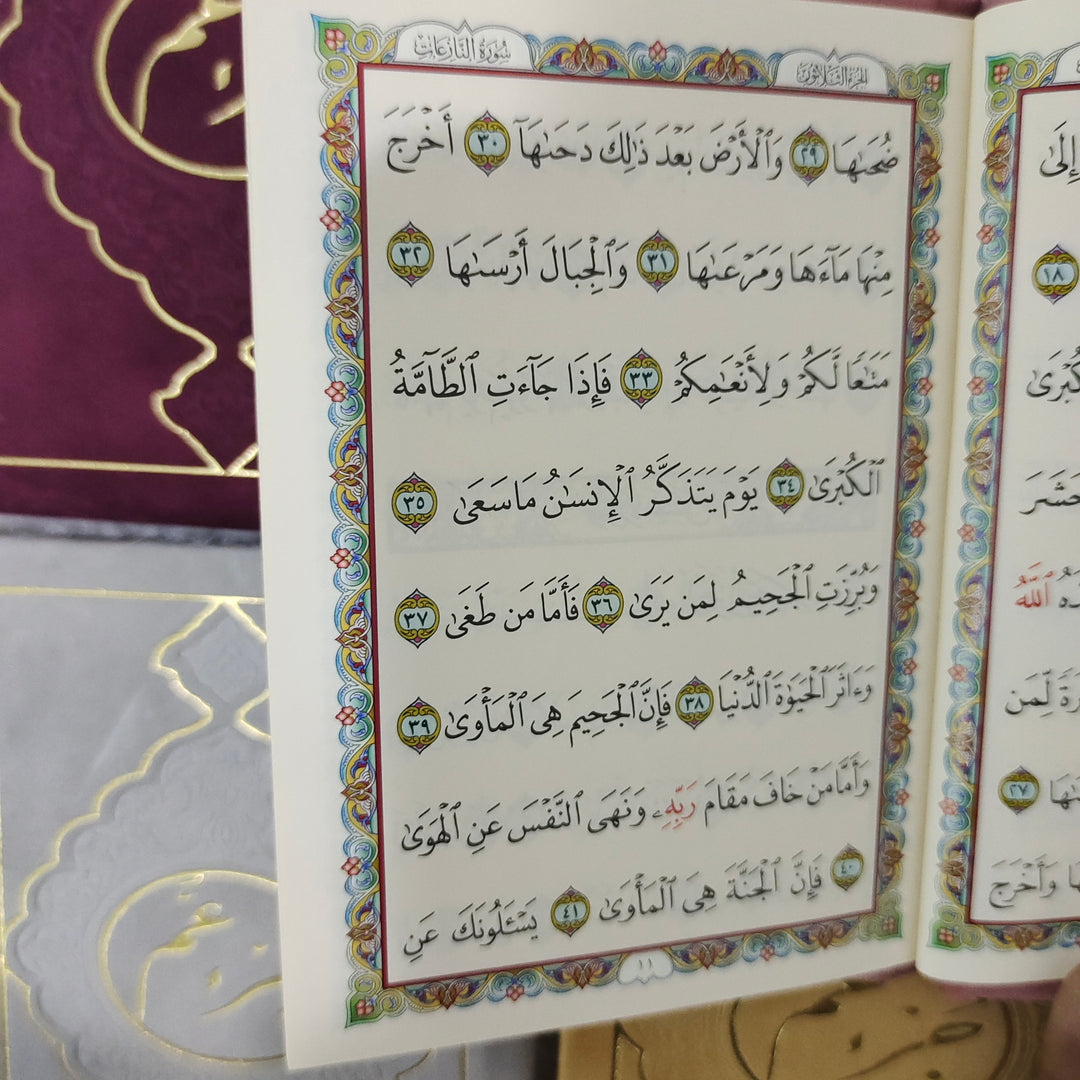 سُورَةُ النَّازِعَاتِ
الجُزْءُ الثَّلَاثُونَ
ضُحَىٰهَا ٢٩ وَٱلْأَرْضَ بَعْدَ ذَٰلِكَ دَحَىٰهَآ ٣٠ أَخْرَجَ
مِنْهَا مَآءَهَا وَمَرْعَىٰهَا ٣١ وَٱلْجِبَالَ أَرْسَىٰهَا ٣٢
مَتَٰعًا لَّكُمْ وَلِأَنْعَٰمِكُمْ ٣٣ فَإِذَا جَآءَتِ ٱلطَّآمَّةُ
ٱلْكُبْرَىٰ ٣٤ يَوْمَ يَتَذَكَّرُ ٱلْإِنسَٰنُ مَا سَعَىٰ ٣٥
وَبُرِّزَتِ ٱلْجَحِيمُ لِمَن يَرَىٰ ٣٦ فَأَمَّا مَن طَغَىٰ ٣٧
وَءَاثَرَ ٱلْحَيَوٰةَ ٱلدُّنْيَا ٣٨ فَإِنَّ ٱلْجَحِيمَ هِىَ ٱلْمَأْوَىٰ ٣٩
وَأَمَّا مَنْ خَافَ مَقَامَ رَبِّهِۦ وَنَهَى ٱلنَّفْسَ عَنِ ٱلْهَوَىٰ
٤٠ فَإِنَّ ٱلْجَنَّةَ هِىَ ٱلْمَأْوَىٰ ٤١ يَسْـَٔلُونَكَ عَنِ
١١
إِلَىٰ
١٨
فَحَشَرَ
ٱللَّهُ
لِّمَن
٢٧
وَأَخْرَجَ